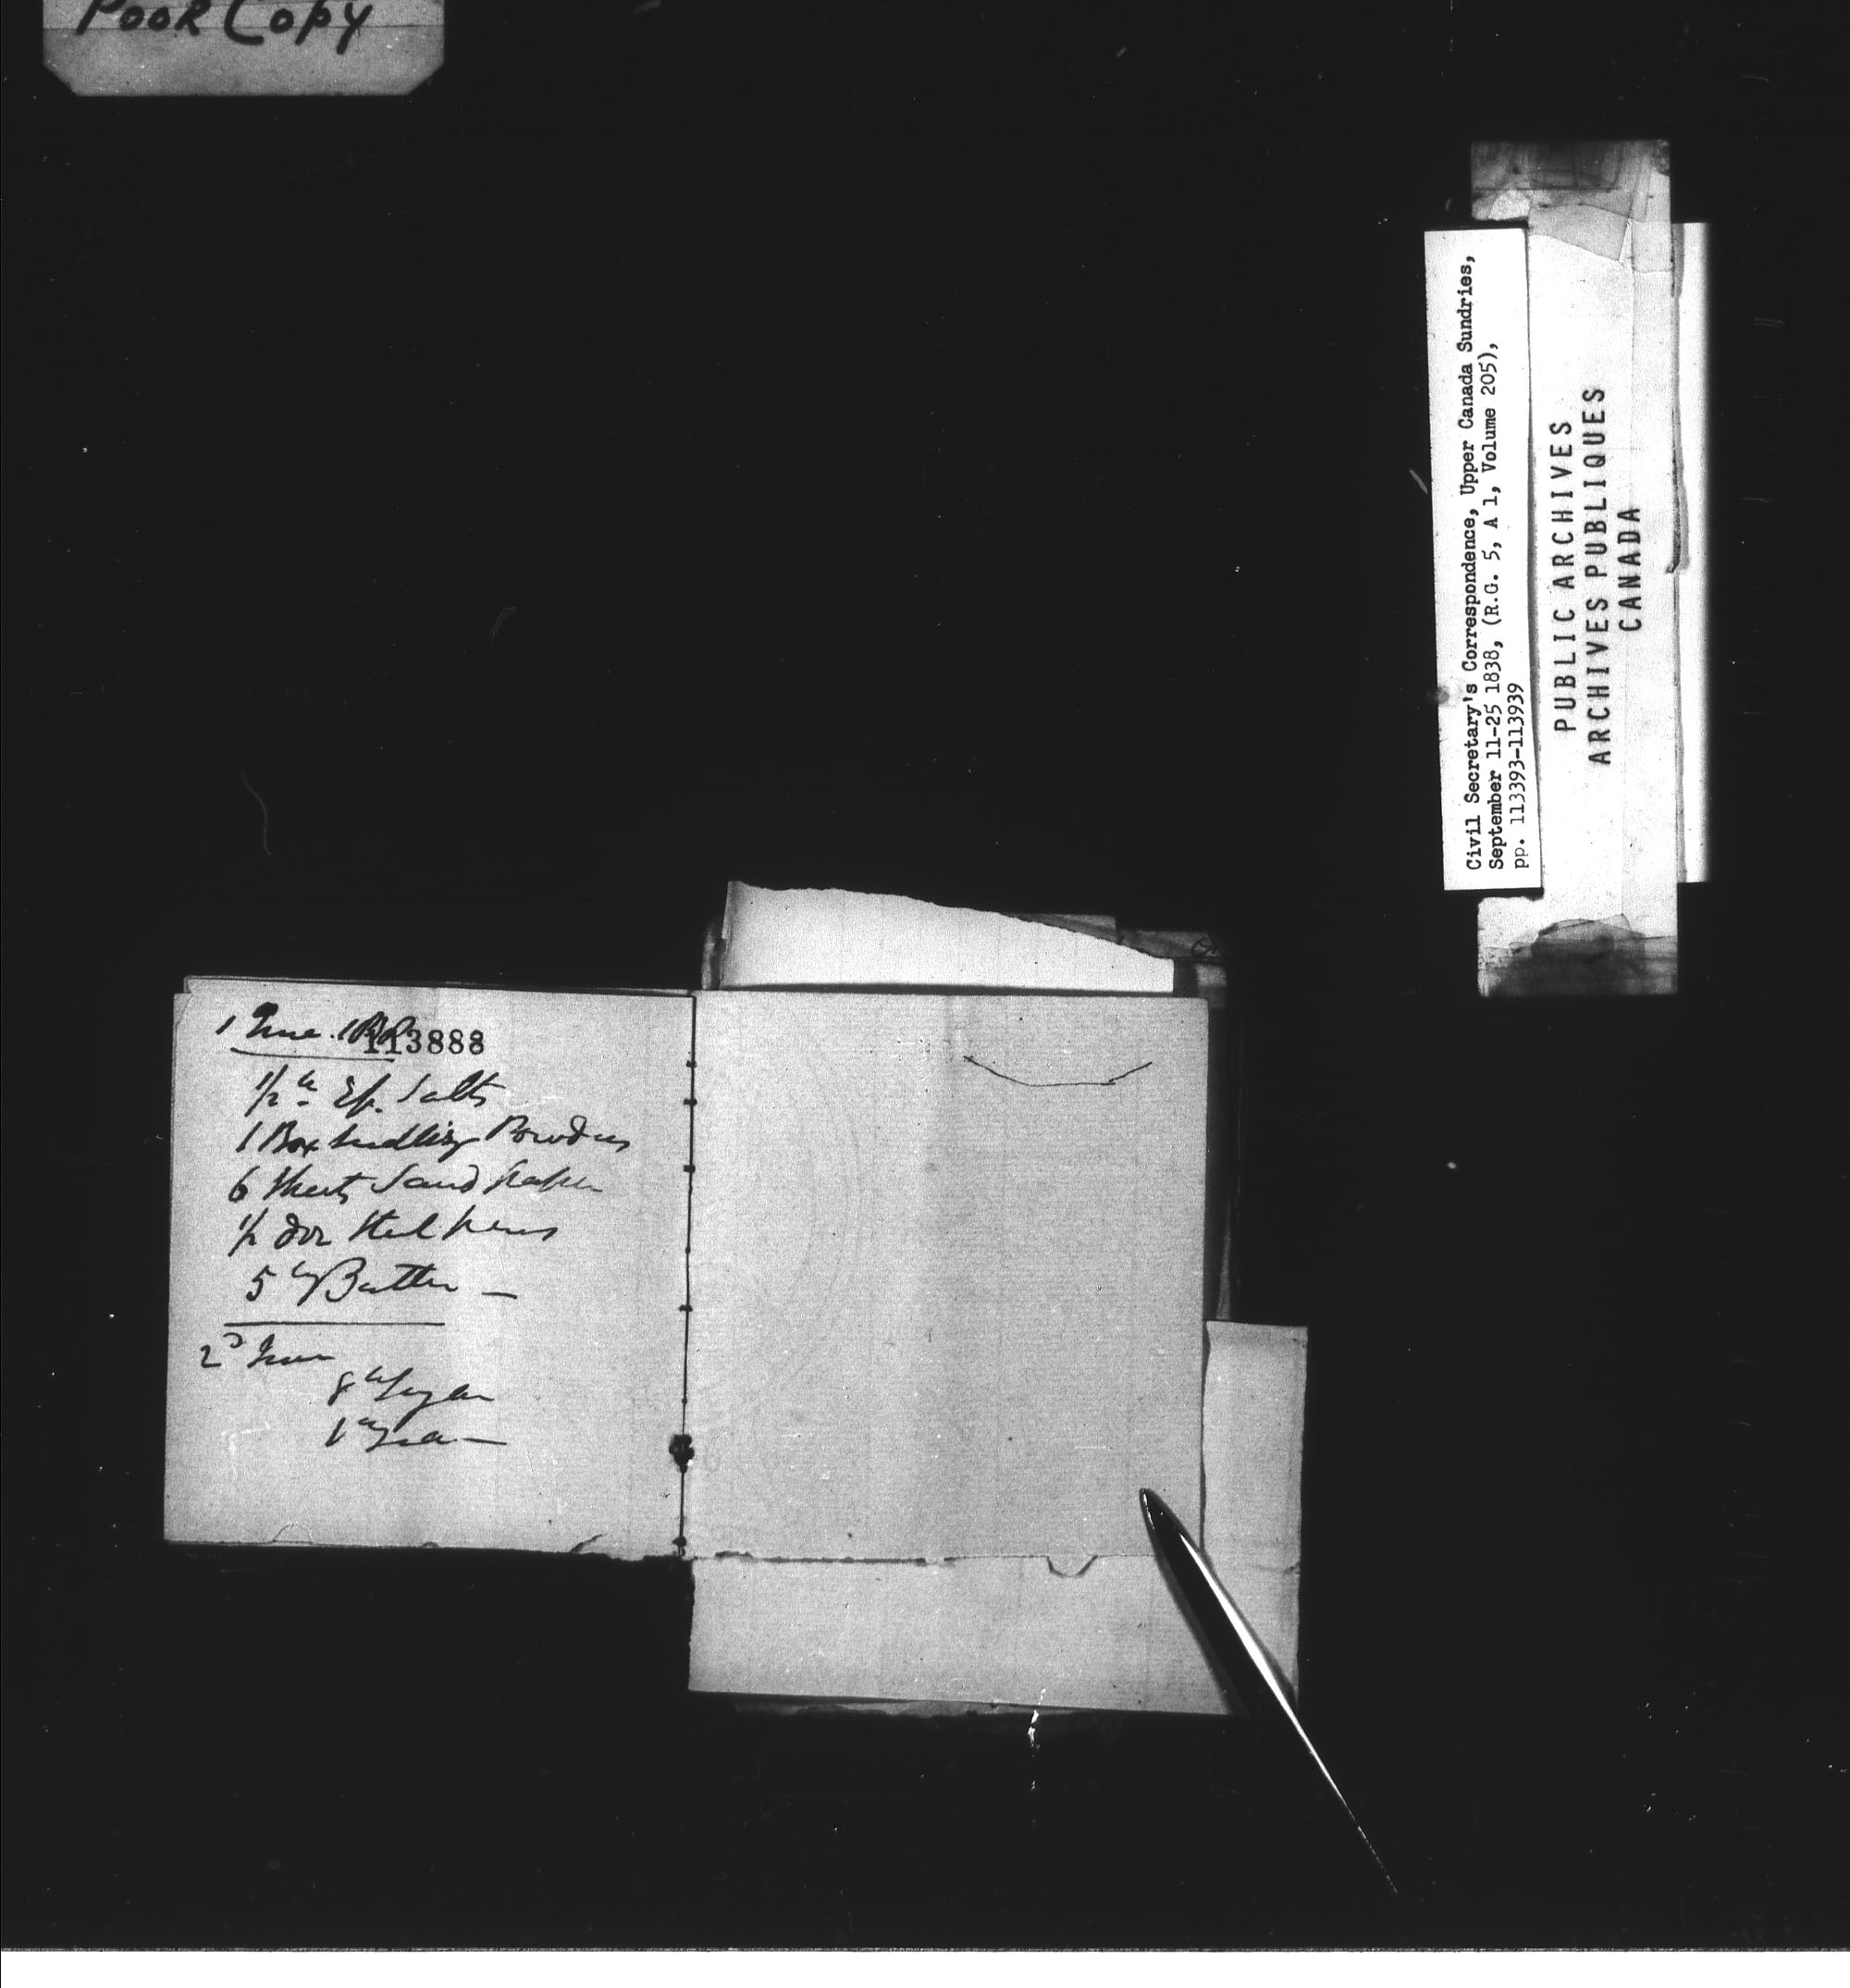 Poor Copy
Civil Secretary's Correspondence, Upper Canada Sundries,
September 11-25 1838, (R.G. 5, A 1, Volume 205),
pp. 113393-113939
PUBLIC ARCHIVES
ARCHIVES PUBLIQUES
CANADA
1 June.
113888
1/2 lb Ep. Salts
1 Box Seidlitz Powders
6 Sheets Sand paper
1/2 doz Steel pens
5 lb Butter —
2d June
8 lb Sugar
1 lb Tea —